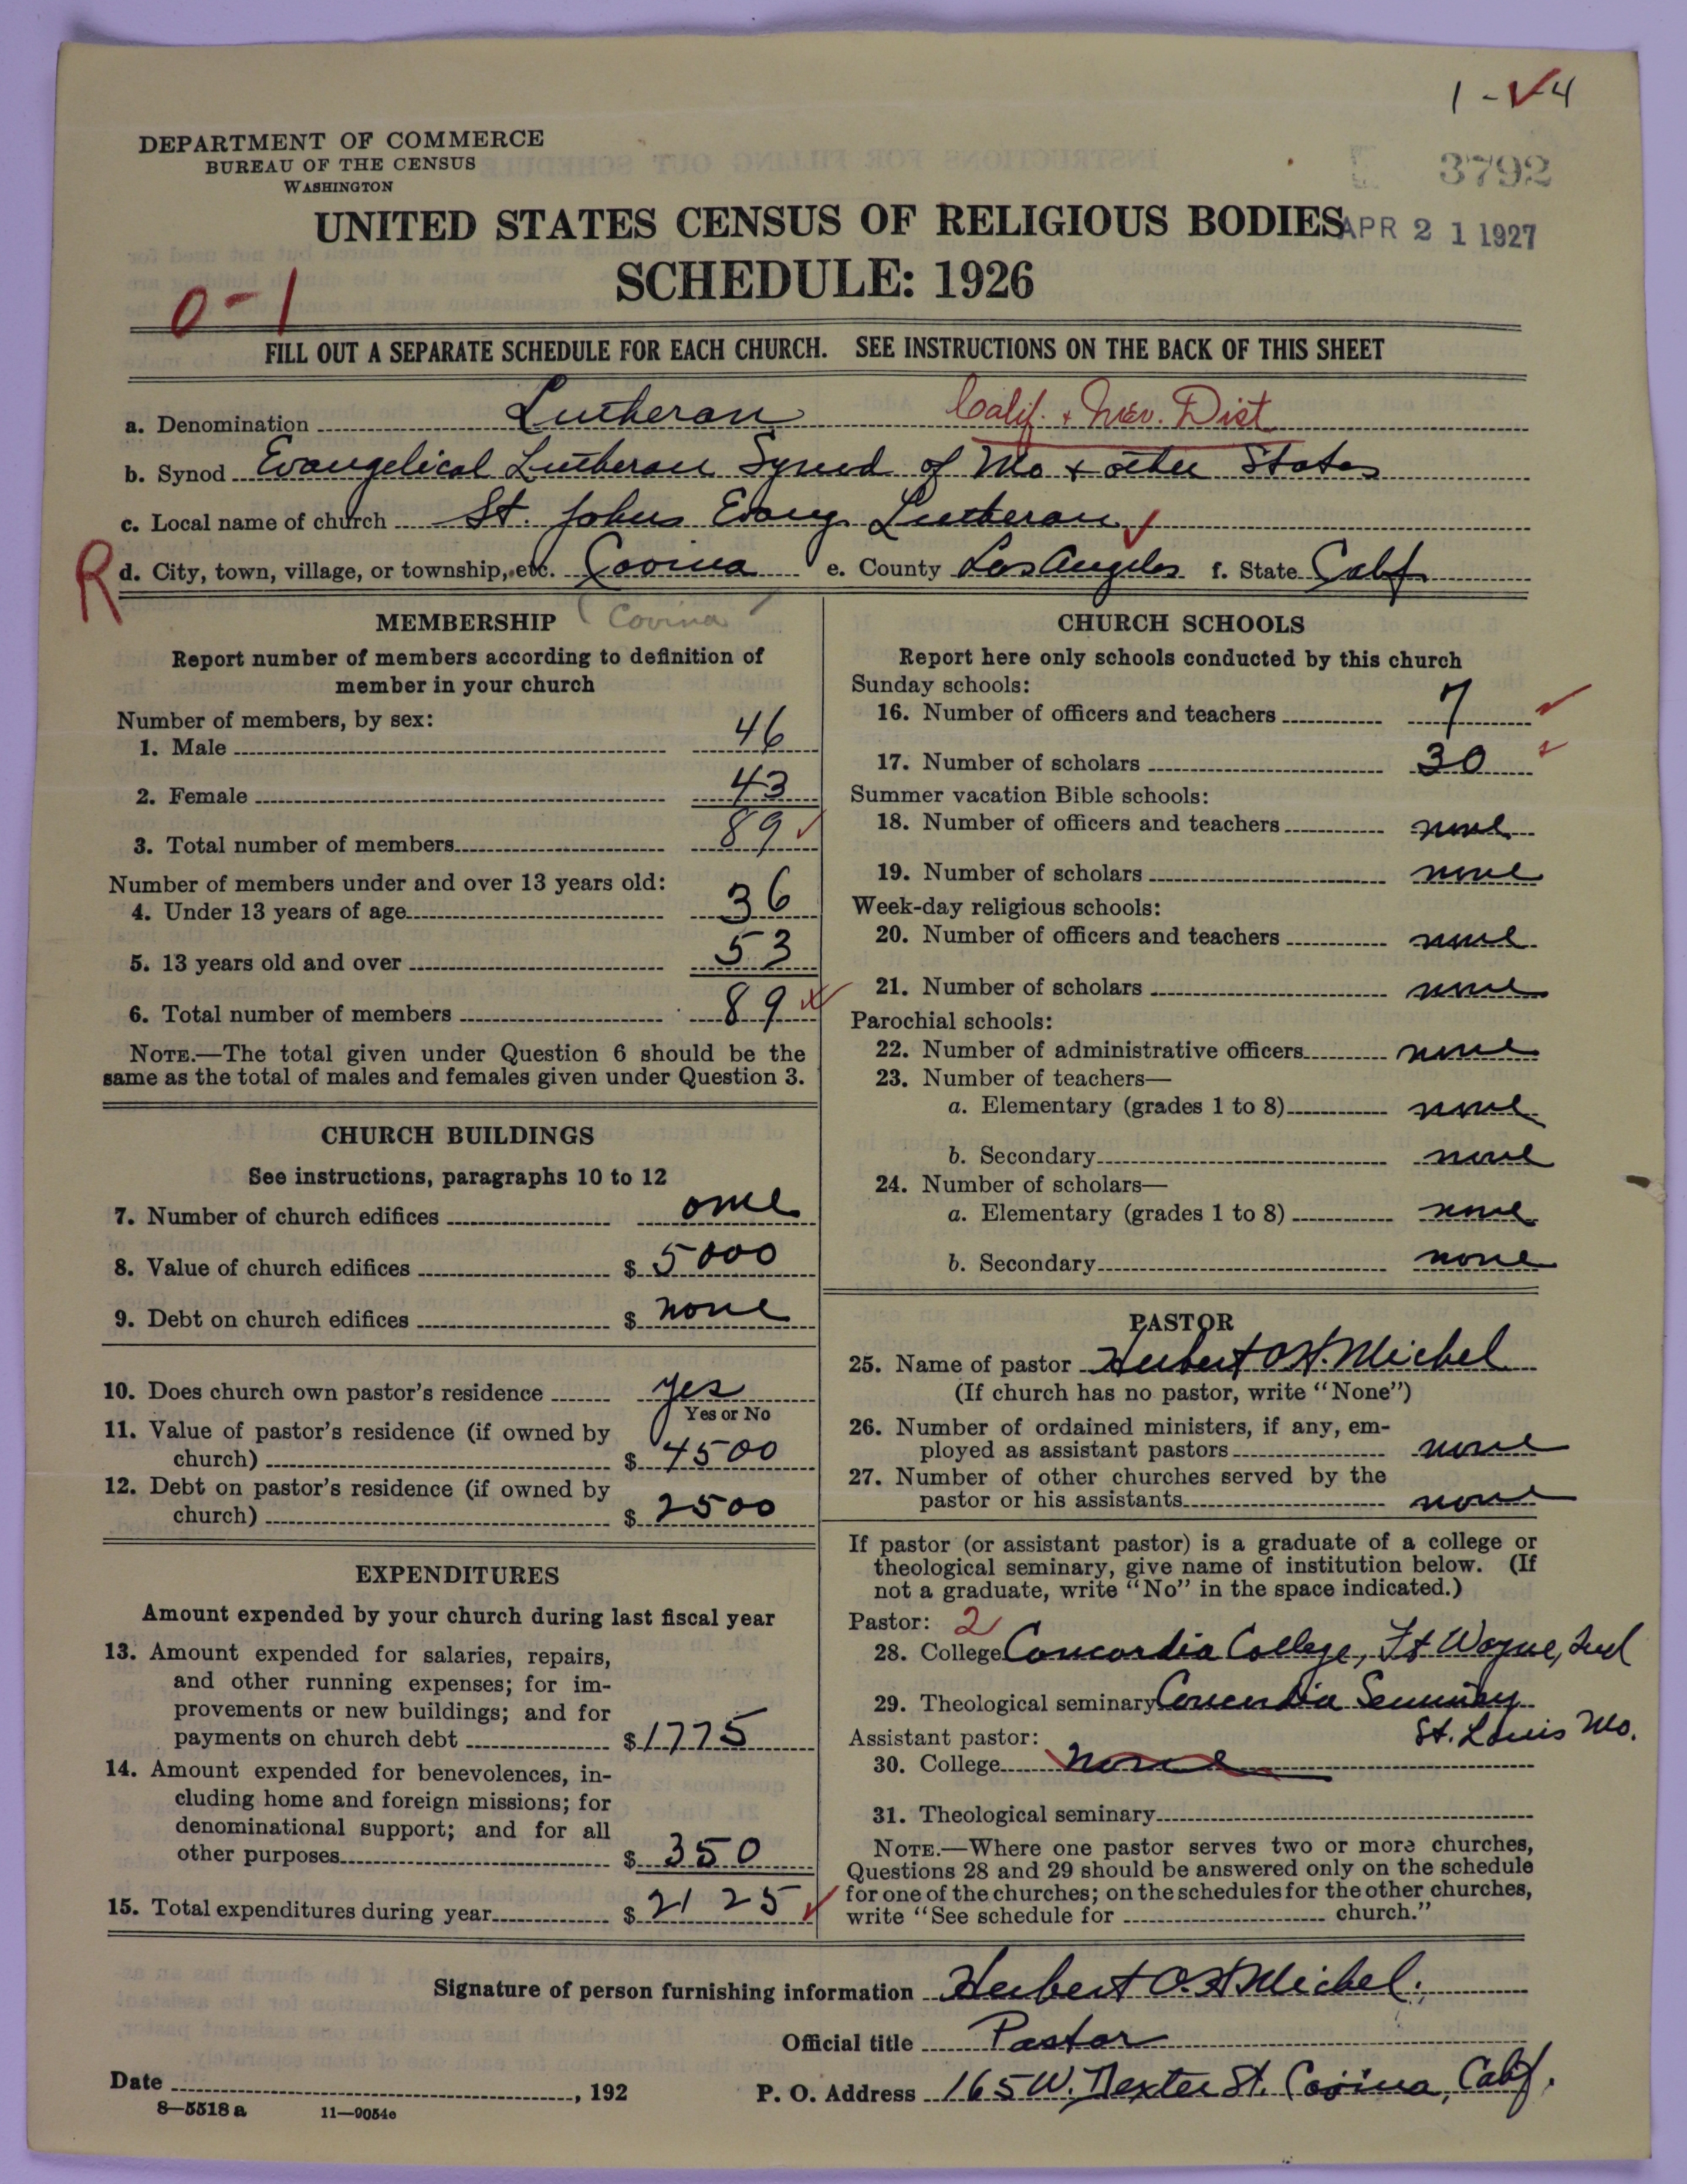 1 - ✓ 4
DEPARTMENT OF COMMERCE
BUREAU OF THE CENSUS
WASHINGTON
3792
UNITED STATES CENSUS OF RELIGIOUS BODIES
APR 21 1927
SCHEDULE: 1926
0-1
FILL OUT A SEPARATE SCHEDULE FOR EACH CHURCH. SEE INSTRUCTIONS ON THE BACK OF THIS SHEET
a. Denomination Lutheran Calif. + Nev. Dist
b. Synod Evangelical Lutheran Synod of Mo + other States
c. Local name of church St. Johns Evang. Lutheran
R d. City, town, village, or township, etc. Covina e. County Los Angeles f. State Calif
MEMBERSHIP Covina
Report number of members according to definition of
member in your church
Number of members, by sex:
1. Male 46
2. Female 43
3. Total number of members 89
Number of members under and over 13 years old:
4. Under 13 years of age 36
5. 13 years old and over 53
6. Total number of members 89
NOTE.—The total given under Question 6 should be the
same as the total of males and females given under Question 3.
CHURCH BUILDINGS
See instructions, paragraphs 10 to 12
7. Number of church edifices one
8. Value of church edifices $ 5000
9. Debt on church edifices $ none
10. Does church own pastor's residence yes
Yes or No
11. Value of pastor's residence (if owned by
church) $ 4500
12. Debt on pastor's residence (if owned by
church) $ 2500
EXPENDITURES
Amount expended by your church during last fiscal year
13. Amount expended for salaries, repairs,
and other running expenses; for im-
provements or new buildings; and for
payments on church debt $ 1775
14. Amount expended for benevolences, in-
cluding home and foreign missions; for
denominational support; and for all
other purposes $ 350
15. Total expenditures during year $ 2125
CHURCH SCHOOLS
Report here only schools conducted by this church
Sunday schools:
16. Number of officers and teachers 7
17. Number of scholars 30
Summer vacation Bible schools:
18. Number of officers and teachers none
19. Number of scholars none
Week-day religious schools:
20. Number of officers and teachers none
21. Number of scholars none
Parochial schools:
22. Number of administrative officers none
23. Number of teachers—
a. Elementary (grades 1 to 8) none
b. Secondary none
24. Number of scholars—
a. Elementary (grades 1 to 8) none
b. Secondary none
PASTOR
25. Name of pastor Herbert O. H. Michel
(If church has no pastor, write "None")
26. Number of ordained ministers, if any, em-
ployed as assistant pastors none
27. Number of other churches served by the
pastor or his assistants none
If pastor (or assistant pastor) is a graduate of a college or
theological seminary, give name of institution below. (If
not a graduate, write "No" in the space indicated.)
Pastor: 2
28. College Concordia College, Ft Wayne, Ind
29. Theological seminary Concordia Seminary
St. Louis Mo.
Assistant pastor:
30. College none
31. Theological seminary
NOTE.—Where one pastor serves two or more churches,
Questions 28 and 29 should be answered only on the schedule
for one of the churches; on the schedules for the other churches,
write "See schedule for church."
Signature of person furnishing information Herbert O. H. Michel.
Official title Pastor
Date , 192
P. O. Address 165 W. Dexter St. Covina, Calif.
8—5518 a 11—9054c